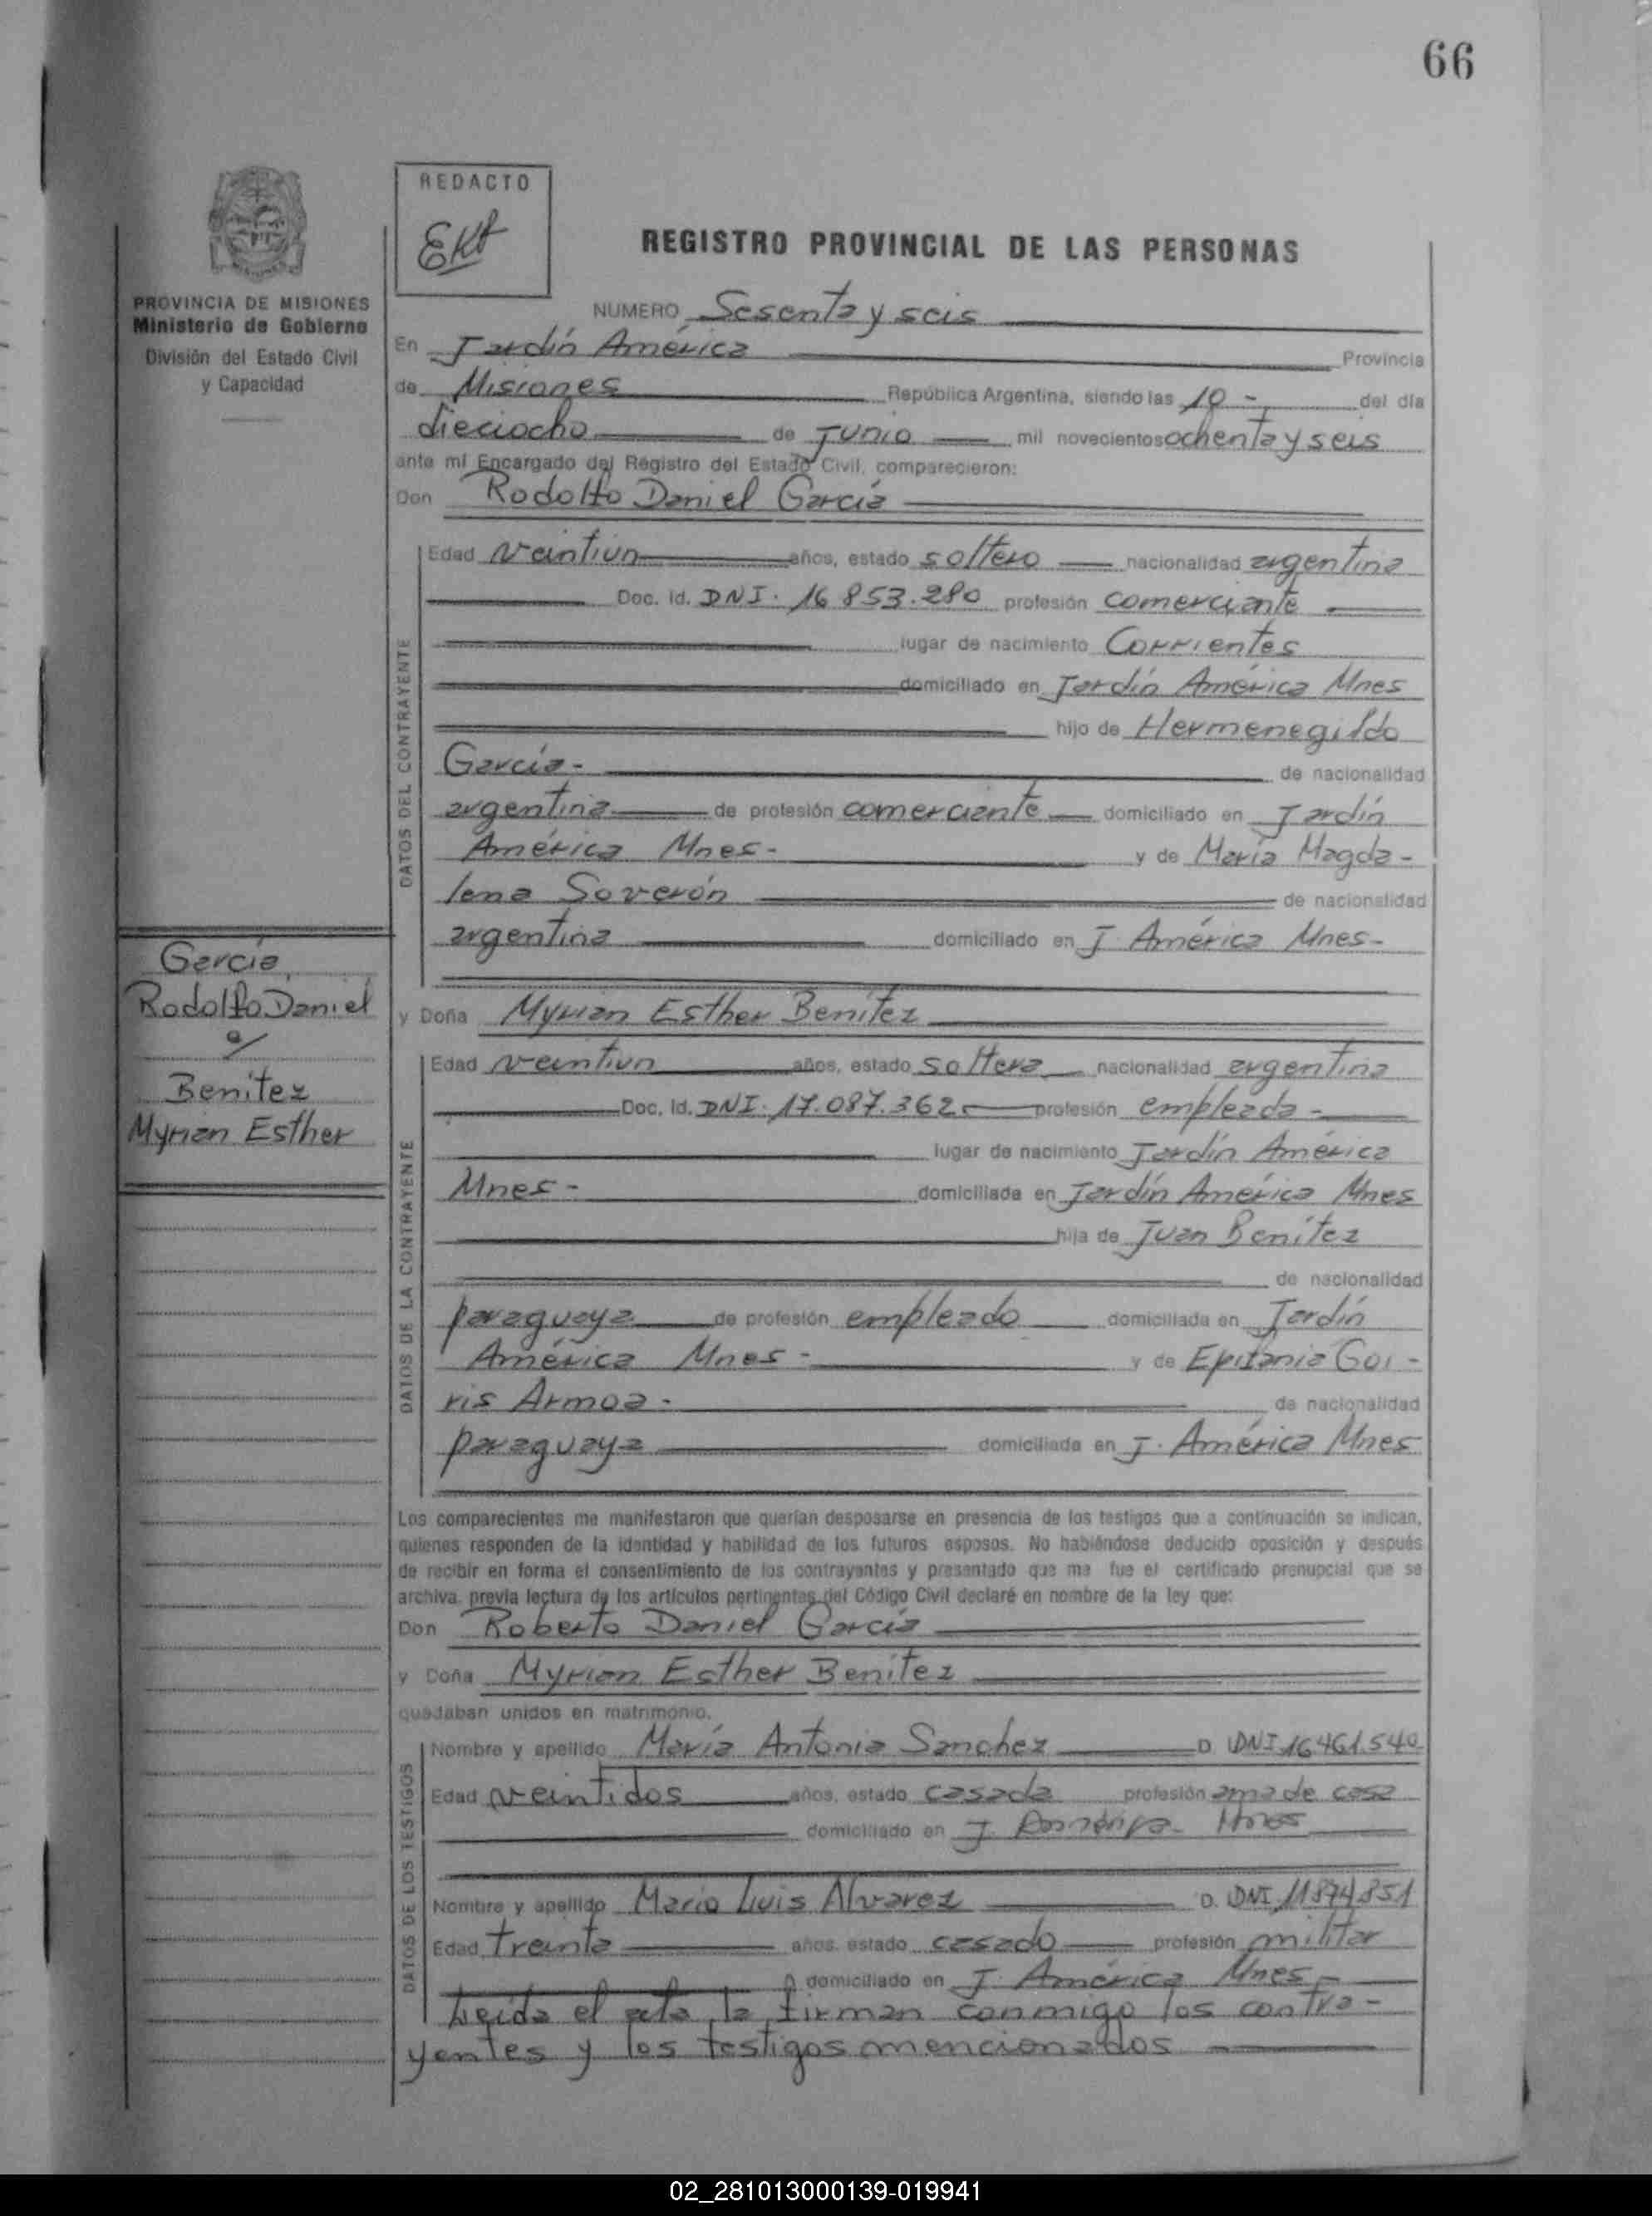 66
REDACTO
EKA
REGISTRO PROVINCIAL DE LAS PERSONAS
PROVINCIA DE MISIONES
Ministerio de Gobierno
División del Estado Civil
y Capacidad
NUMERO Sesenta y seis
En Jardín América Provincia
de Misiones República Argentina, siendo las 10 - del día
dieciocho de Junio mil novecientos ochenta y seis
ante mí Encargado del Registro del Estado Civil, comparecieron:
Don Rodolfo Daniel García
DATOS DEL CONTRAYENTE
Edad veintiun años, estado soltero nacionalidad argentina
Doc. Id. DNI. 16 853.280 profesión comerciante
lugar de nacimiento Corrientes
domiciliado en Jardín América Mnes
hijo de Hermenegildo
García - de nacionalidad
argentina de profesión comerciante domiciliado en Jardín
América Mnes - y de María Magda -
lena Soverón de nacionalidad
argentina domiciliado en J. América Mnes -
García
Rodolfo Daniel
c/
Benítez
Myrian Esther
y Doña Myrian Esther Benítez
DATOS DE LA CONTRAYENTE
Edad veintiun años, estado soltera nacionalidad argentina
Doc. Id. DNI. 17.087.362 profesión empleada -
lugar de nacimiento Jardín América
Mnes - domiciliada en Jardín América Mnes
hija de Juan Benítez
de nacionalidad
paraguaya de profesión empleado domiciliada en Jardín
América Mnes - y de Epifania Goi -
ris Armoa - de nacionalidad
paraguaya domiciliada en J. América Mnes
Los comparecientes me manifestaron que querían desposarse en presencia de los testigos que a continuación se indican,
quienes responden de la identidad y habilidad de los futuros esposos. No habiéndose deducido oposición y después
de recibir en forma el consentimiento de los contrayentes y presentado que me fue el certificado prenupcial que se
archiva, previa lectura de los artículos pertinentes del Código Civil declaré en nombre de la ley que:
Don Roberto Daniel García
y Doña Myrian Esther Benítez
quedaban unidos en matrimonio.
DATOS DE LOS TESTIGOS
Nombre y apellido María Antonia Sanchez D. DNI 16461.540
Edad veintidos años, estado casada profesión ama de casa
domiciliado en J. América Mnes
Nombre y apellido Mario Luis Alvarez D. DNI 11874851
Edad treinta años, estado casado profesión militar
domiciliado en J. América Mnes -
Leída el acta, la firman conmigo los contra -
yentes y los testigos mencionados
02_281013000139-019941